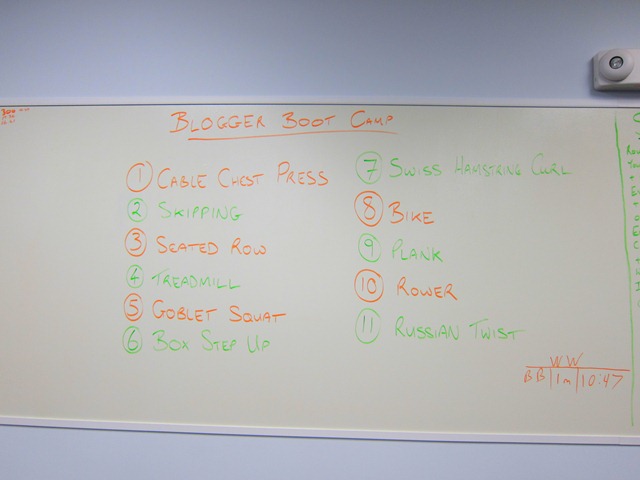 BLOGGER BOOT CAMP
1 CABLE CHEST PRESS
2 SKIPPING
3 SEATED ROW
4 TREADMILL
5 GOBLET SQUAT
6 BOX STEP UP
7 SWISS HAMSTRING CURL
8 BIKE
9 PLANK
10 ROWER
11 RUSSIAN TWIST
WW
BB | 1m | 10:47